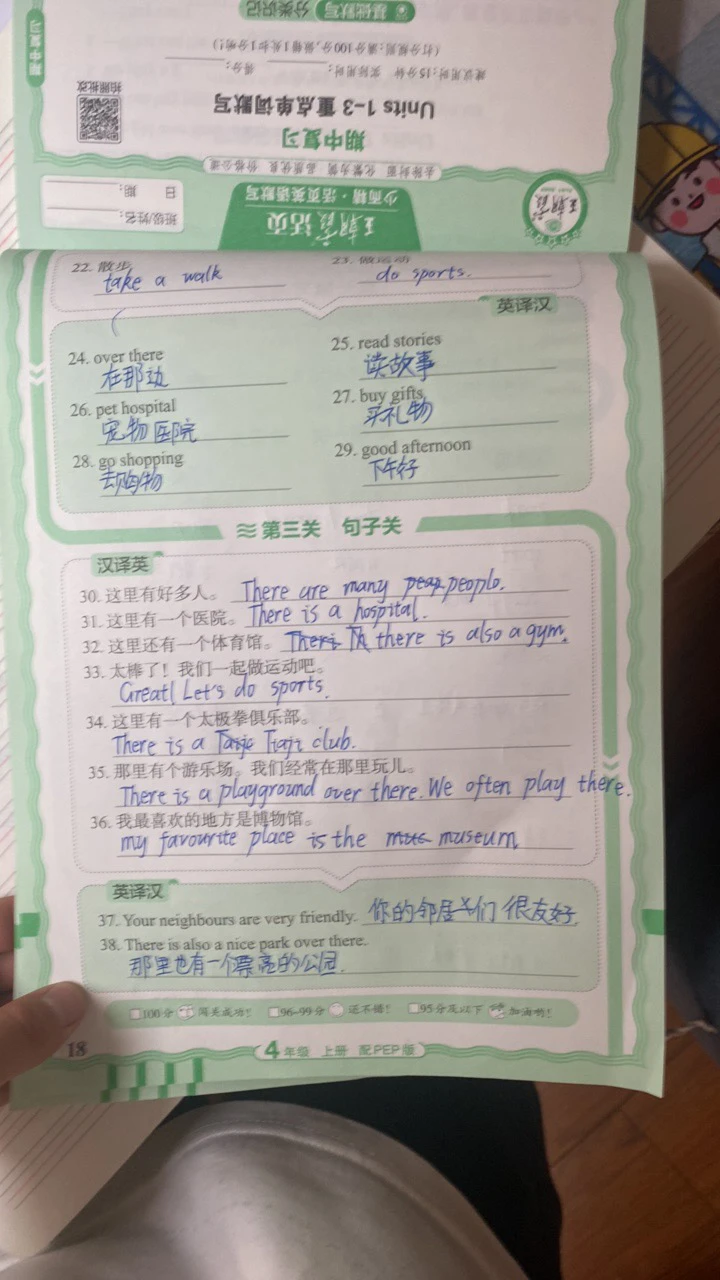 基础默写 分类识记
期中复习
(打√规则:满分100分,每错1处扣1分哟!)
建议用时:15分钟 实际用时: 得分:
拍照批改
Units 1-3 重点单词默写
期中复习
王朝霞活页
少而精·活页英语默写
班级/姓名:
日期:
22. 散步 take a walk
23. 做运动 do sports.
英译汉
24. over there 在那边
25. read stories 读故事
26. pet hospital 宠物医院
27. buy gifts 买礼物
28. go shopping 去购物
29. good afternoon 下午好
第三关 句子关
汉译英
30. 这里有好多人。 There are many people.
31. 这里有一个医院。 There is a hospital.
32. 这里还有一个体育馆。 there is also a gym.
33. 太棒了!我们一起做运动吧。
Great! Let's do sports.
34. 这里有一个太极拳俱乐部。
There is a Taiji club.
35. 那里有个游乐场。我们经常在那里玩儿。
There is a playground over there. We often play there.
36. 我最喜欢的地方是博物馆。
my favourite place is the museum.
英译汉
37. Your neighbours are very friendly. 你的邻居们很友好.
38. There is also a nice park over there.
那里也有一个漂亮的公园.
□100分 闯关成功! □96~99分 还不错! □95分及以下 加油哟!
18
4年级 上册 配PEP版